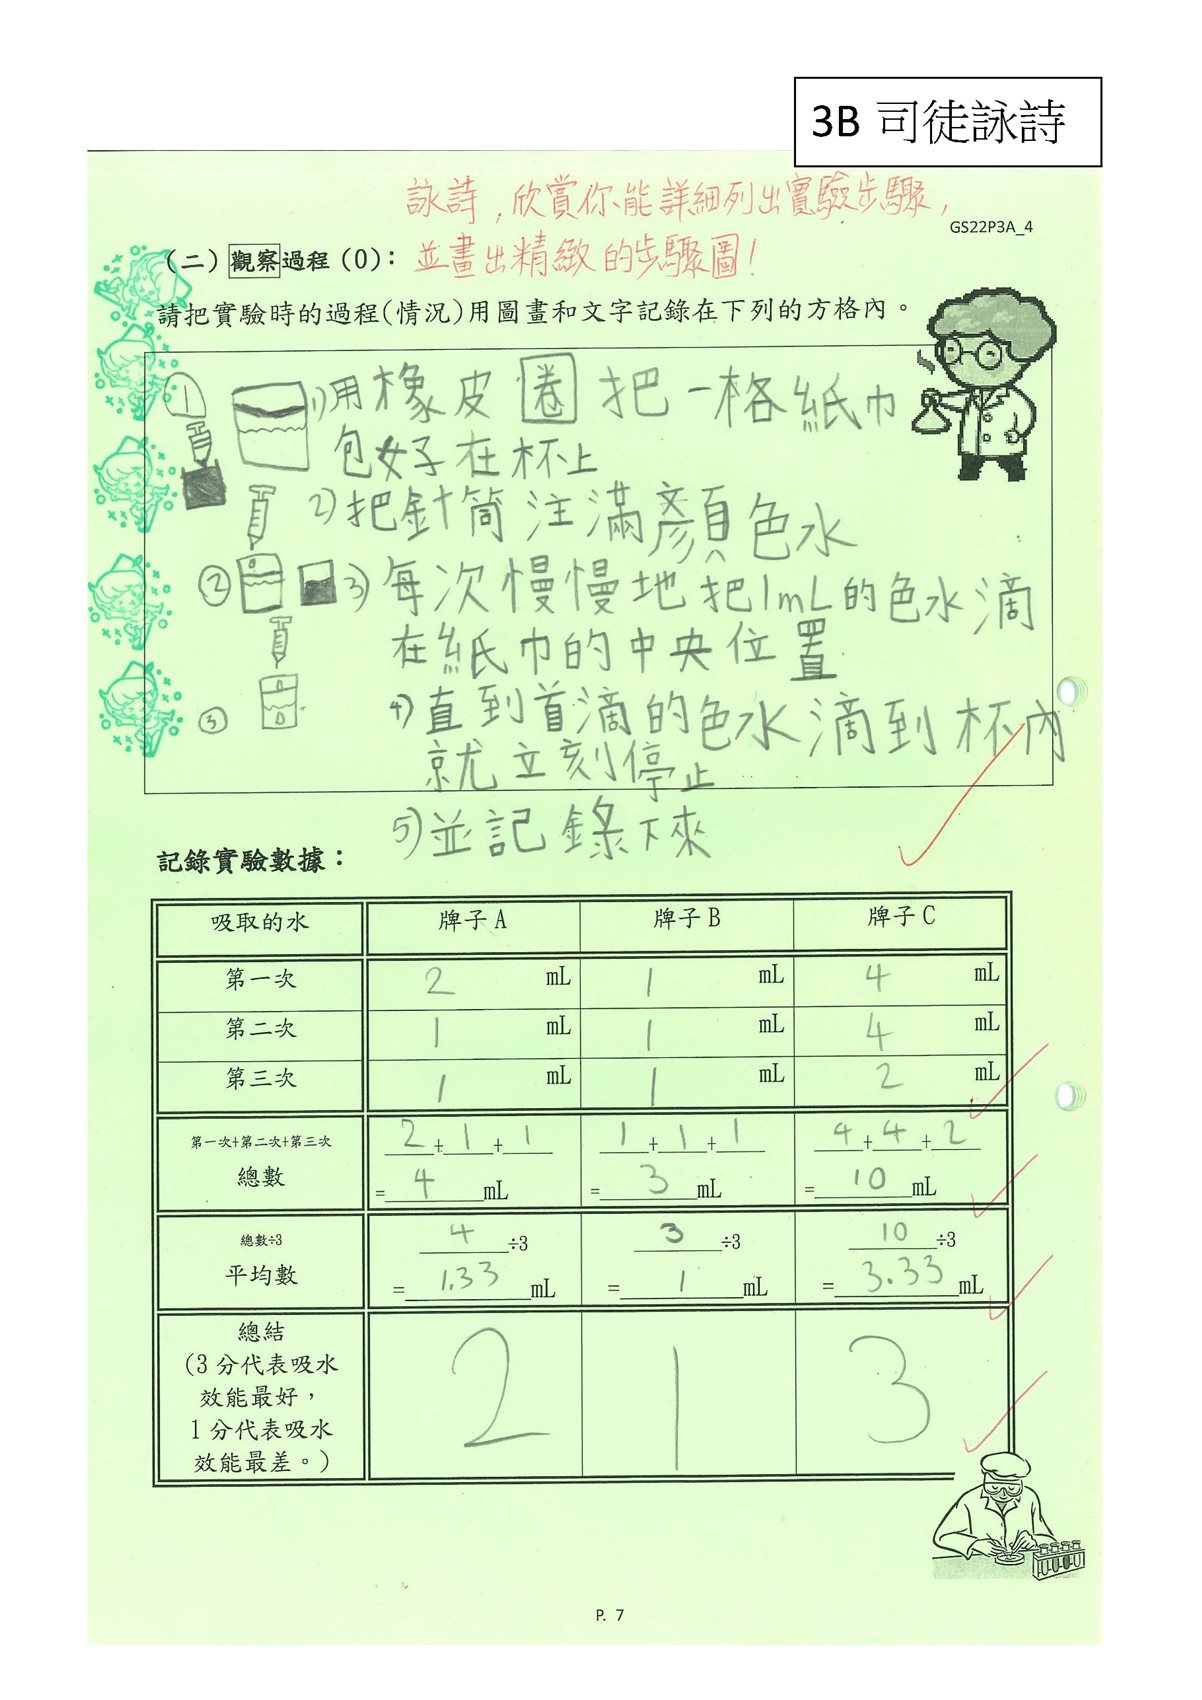 3B 司徒詠詩
詠詩，欣賞你能詳細列出實驗步驟，
GS22P3A_4
（二）觀察過程（O）：並畫出精緻的步驟圖！
請把實驗時的過程（情況）用圖畫和文字記錄在下列的方格內。
① 1）用橡皮圈把一格紙巾
包好在杯上
2）把針筒注滿顏色水
② 3）每次慢慢地把1mL的色水滴
在紙巾的中央位置
③ 4）直到首滴的色水滴到杯內
就立刻停止
5）並記錄下來
記錄實驗數據：
吸取的水 牌子A 牌子B 牌子C
第一次 2 mL 1 mL 4 mL
第二次 1 mL 1 mL 4 mL
第三次 1 mL 1 mL 2 mL
第一次+第二次+第三次 2+1+1 1+1+1 4+4+2
總數 =4mL =3mL =10mL
總數÷3 4÷3 3÷3 10÷3
平均數 =1.33mL =1mL =3.33mL
總結
（3分代表吸水
效能最好，
1分代表吸水
效能最差。）
2 1 3
P. 7